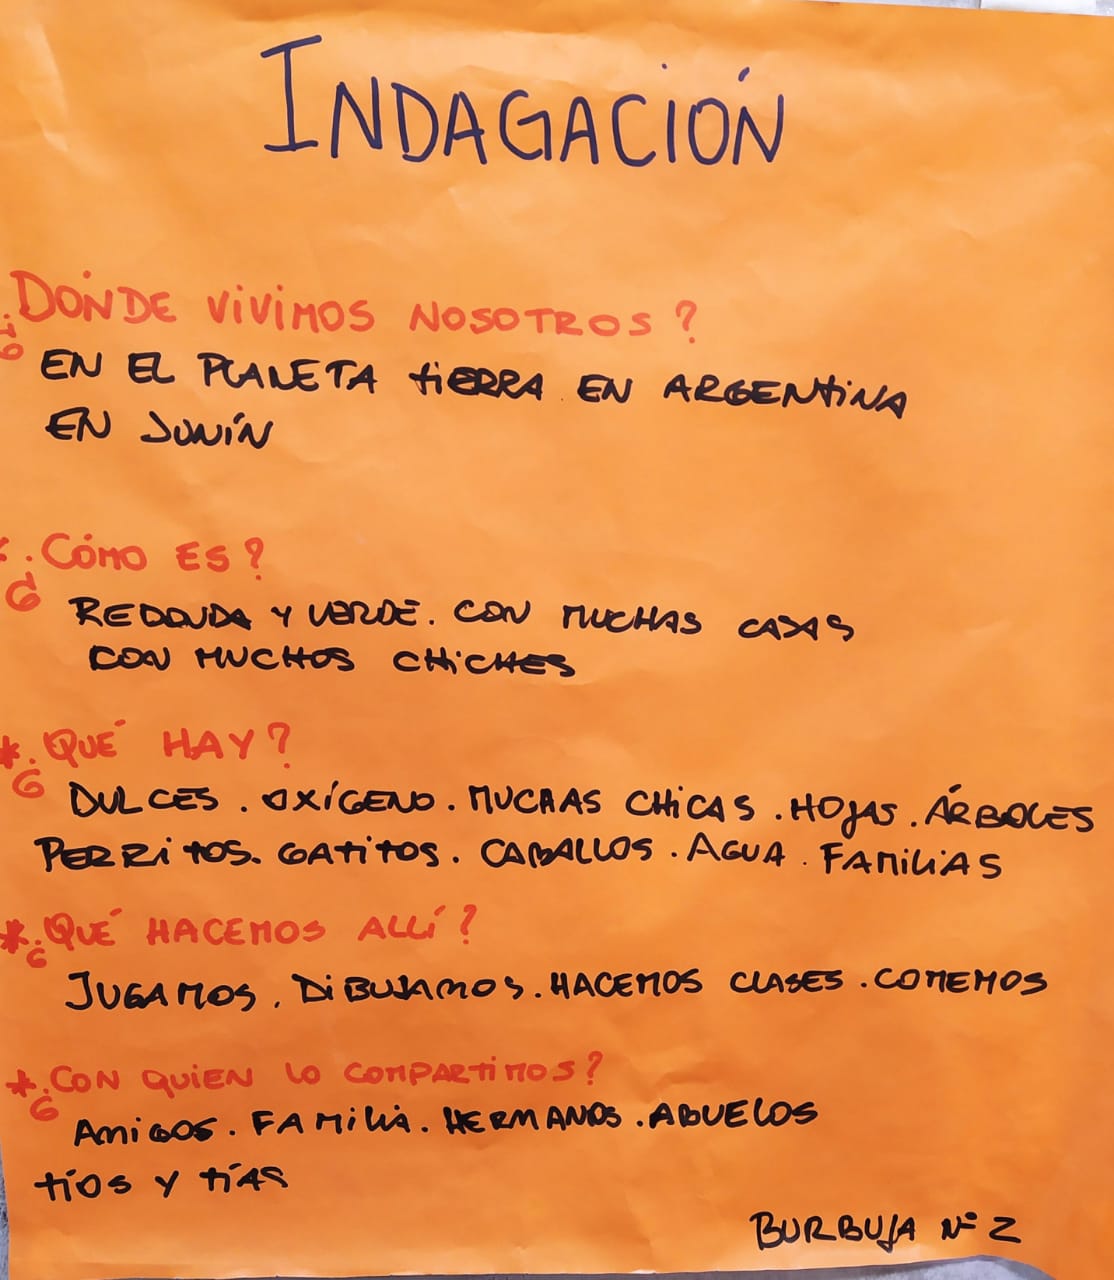 INDAGACIÓN
¿DÓNDE VIVIMOS NOSOTROS?
EN EL PLANETA TIERRA. EN ARGENTINA
EN JUNÍN
* ¿CÓMO ES?
REDONDA Y VERDE. CON MUCHAS CASAS
CON MUCHOS CHICHES
* ¿QUÉ HAY?
DULCES. OXÍGENO. MUCHAS CHICAS. HOJAS. ÁRBOLES
PERRITOS. GATITOS. CABALLOS. AGUA. FAMILIAS
* ¿QUÉ HACEMOS ALLÍ?
JUGAMOS. DIBUJAMOS. HACEMOS CLASES. COMEMOS
* ¿CON QUIEN LO COMPARTIMOS?
AMIGOS. FAMILIA. HERMANOS. ABUELOS
TÍOS Y TÍAS
BURBUJA Nº 2